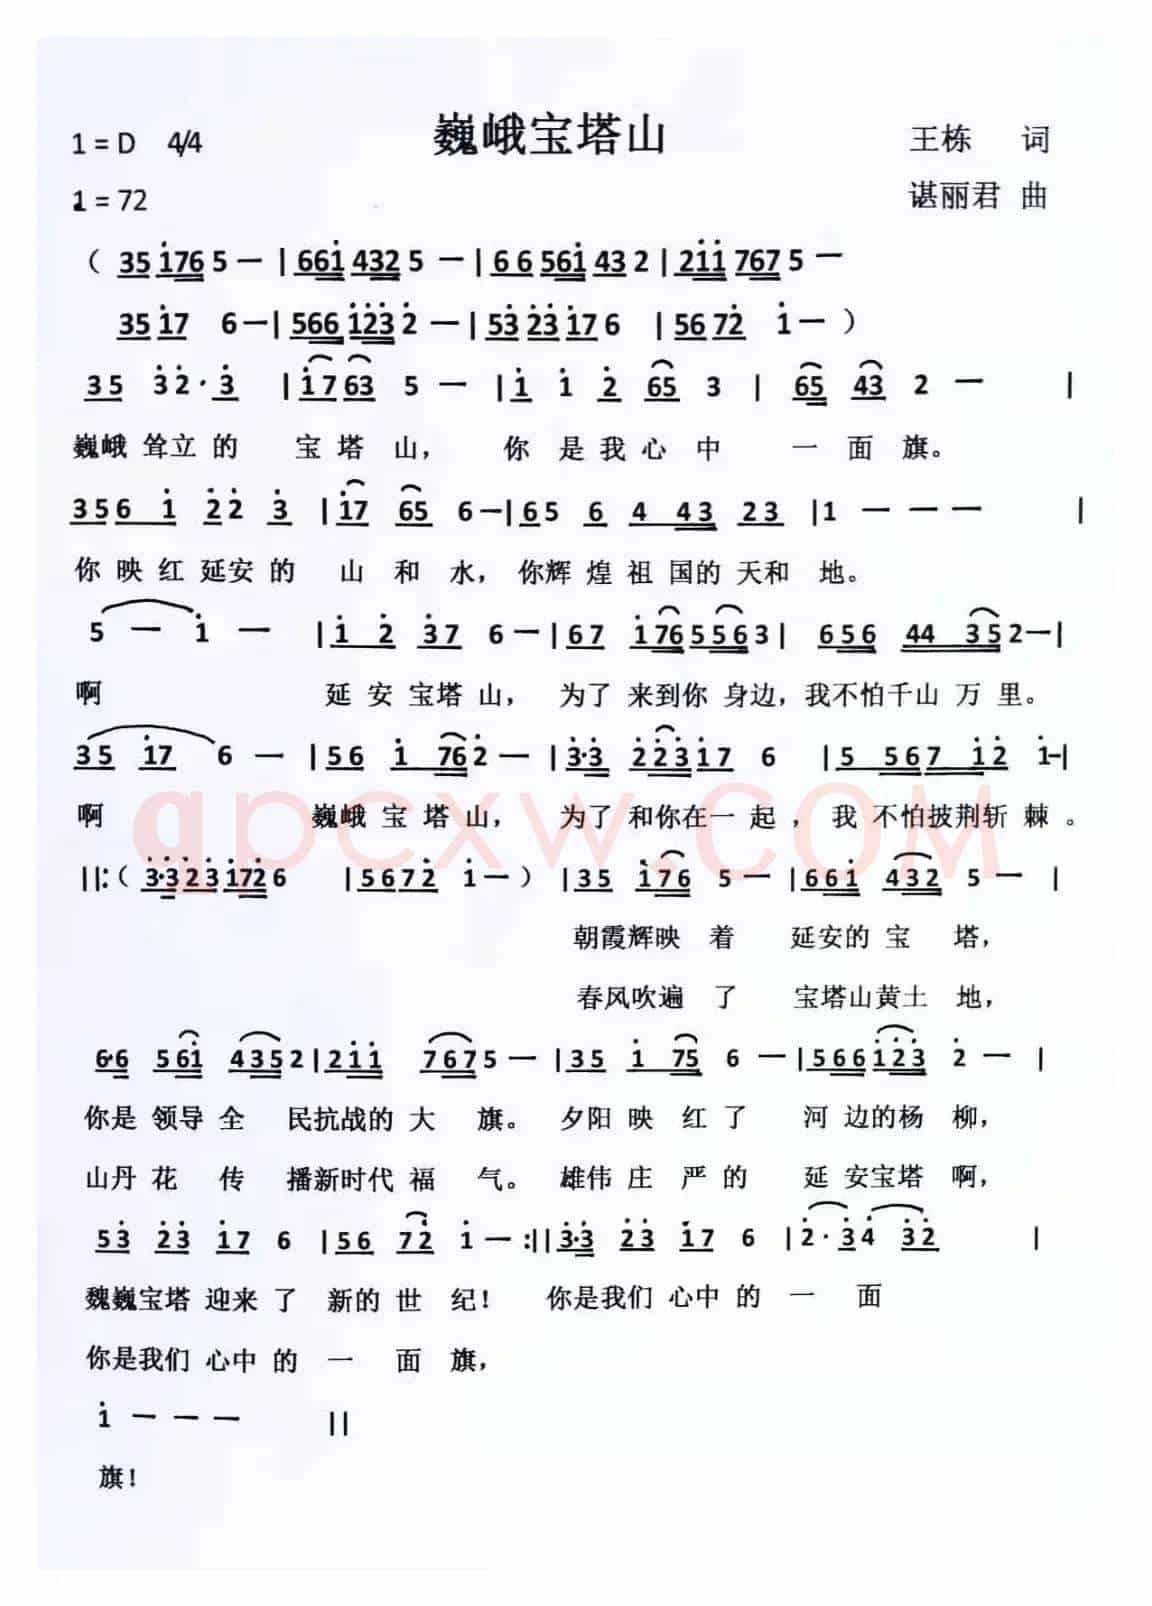 巍峨宝塔山
1 = D 4/4
王栋 词
1 = 72
谌丽君 曲
( 35 176 5 — | 661 432 5 — | 66 561 43 2 | 211 767 5 —
35 17 6 — | 566 123 2 — | 53 23 17 6 | 56 72 1 — )
35 32· 3 | 17 63 5 — | 1 1 2 65 3 | 65 43 2 — |
巍峨 耸立 的 宝 塔 山, 你 是 我 心 中 一 面 旗。
356 1 22 3 | 17 65 6 — | 65 6 4 43 23 | 1 — — — |
你 映 红 延安 的 山 和 水, 你辉 煌 祖 国的 天和 地。
5 — 1 — | 1 2 37 6 — | 67 176 556 3 | 656 44 35 2 — |
啊 延 安 宝塔 山, 为了 来到你 身边,我不怕千山 万 里。
35 17 6 — | 56 1 76 2 — | 3·3 223 17 6 | 5 567 12 1 — |
啊 巍峨 宝 塔 山, 为了 和你在一 起 , 我 不怕披荆斩 棘 。
||:( 3·3 23 172 6 | 5672 1 — ) | 35 176 5 — | 661 432 5 — |
朝霞辉映 着 延安的 宝 塔,
春风吹遍 了 宝塔山黄土 地,
6·6 561 435 2 | 211 767 5 — | 35 1 75 6 — | 566 123 2 — |
你是 领导 全 民抗战的 大 旗。 夕阳 映 红 了 河 边的杨 柳,
山丹 花 传 播新时代 福 气。 雄伟 庄 严 的 延 安宝塔 啊,
53 23 17 6 | 56 72 1 — :|| 3·3 23 17 6 | 2· 34 32 |
魏巍宝塔 迎来 了 新的 世 纪! 你是我们 心中 的 一 面
你是我们 心中 的 一 面 旗,
1 — — — ||
旗!
qpcxw.COM